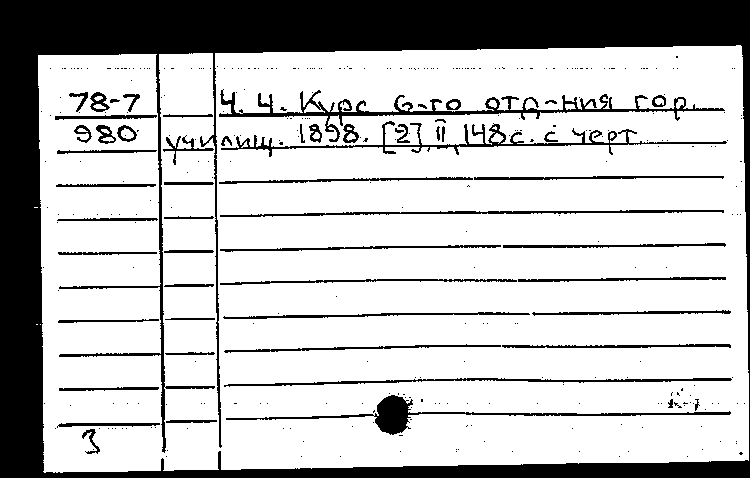 78-7 Ч. 4. Курс 6-го отд-ния гор.
980 училищ. 1898. [2], II, 148 с. с черт
3